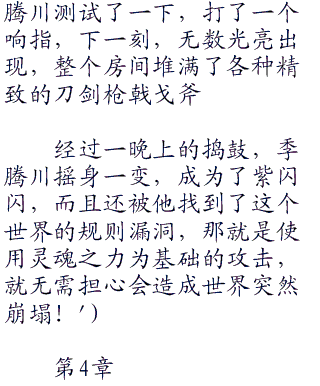 腾川测试了一下，打了一个
响指，下一刻，无数光亮出
现，整个房间堆满了各种精
致的刀剑枪戟戈斧
经过一晚上的捣鼓，季
腾川摇身一变，成为了紫闪
闪，而且还被他找到了这个
世界的规则漏洞，那就是使
用灵魂之力为基础的攻击，
就无需担心会造成世界突然
崩塌！')
第4章